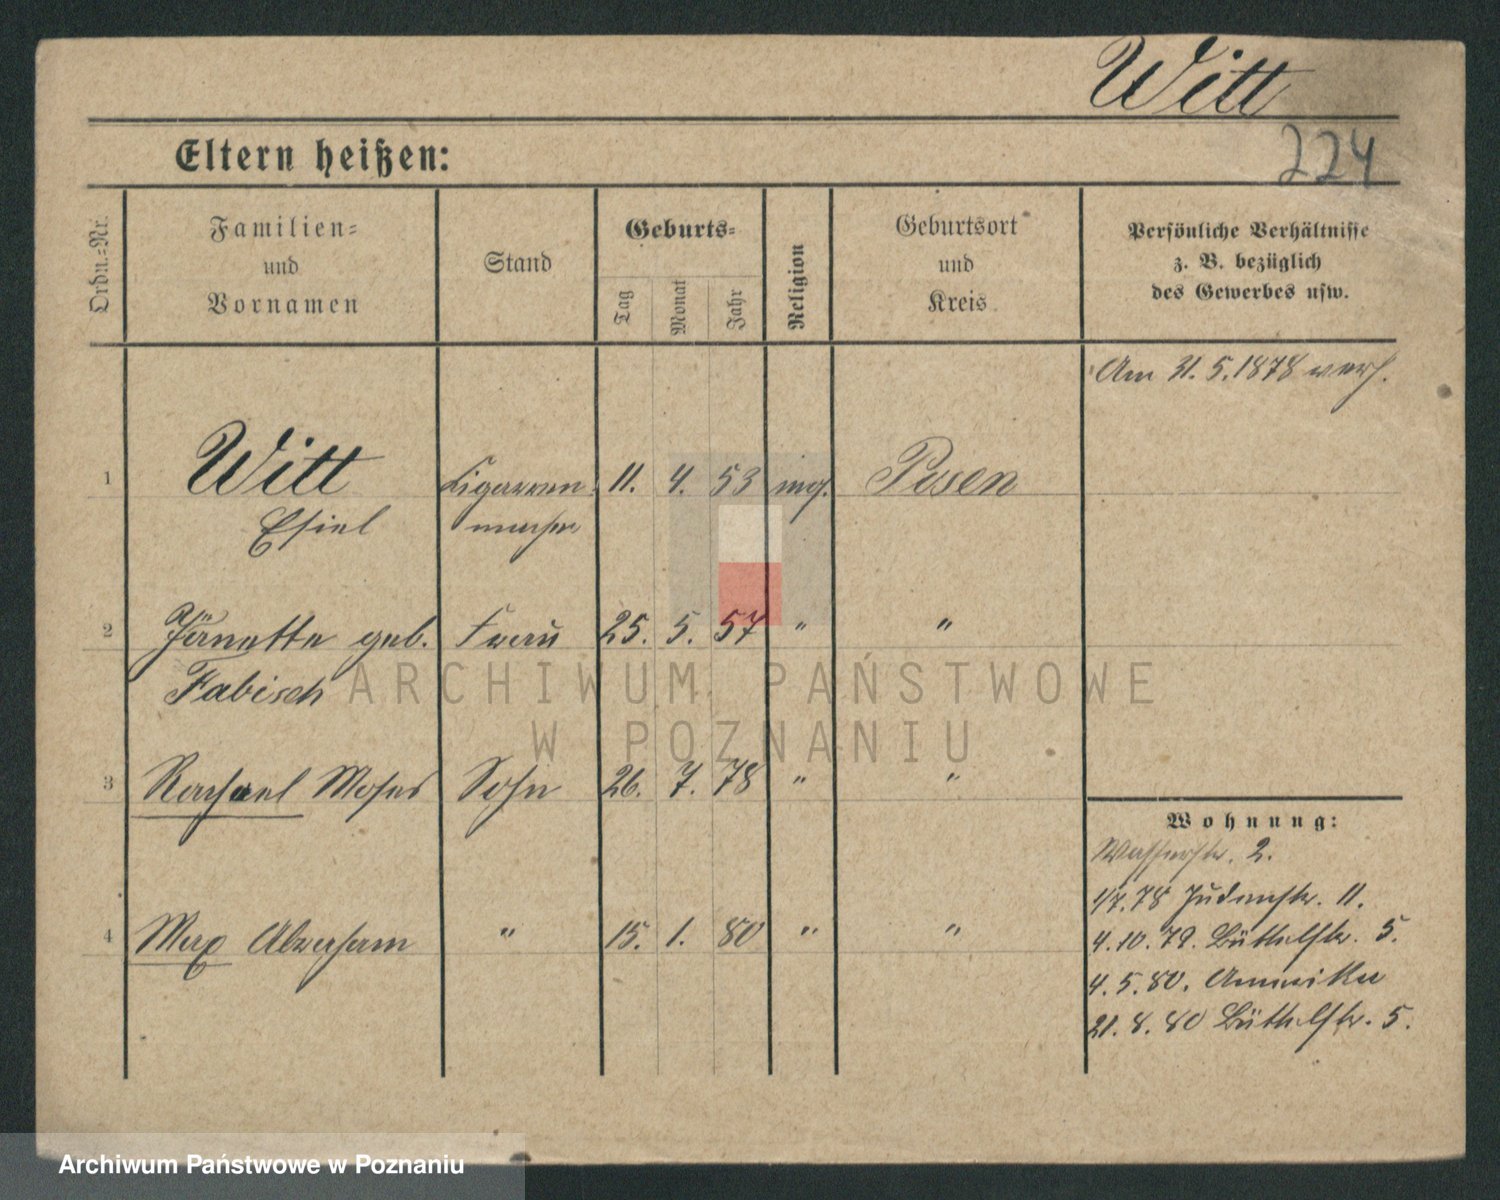 Witt
Eltern heißen:
224
Ordn.=Nr.
Familien=
und
Vornamen
Stand
Geburts=
Tag
Monat
Jahr
Religion
Geburtsort
und
Kreis
Persönliche Verhältnisse
z. B. bezüglich
des Gewerbes usw.
Am 31.5.1878 verh.
1
Witt
Cigarren
11. 4. 53
mos.
Posen
macher
2
Jänette geb. Frau 25. 5. 57 " "
Fabisch
3
Raphael Moses Sohn 26. 7. 78 " "
4
Max Abraham " 15. 1. 80 " "
Wohnung:
Wasserstr. 2.
1/7.78 Judenstr. 11.
4.10.79. Büttelstr. 5.
4.5.80. Amerika
21.8.80 Büttelstr. 5.
ARCHIWUM PAŃSTWOWE
W POZNANIU
Archiwum Państwowe w Poznaniu